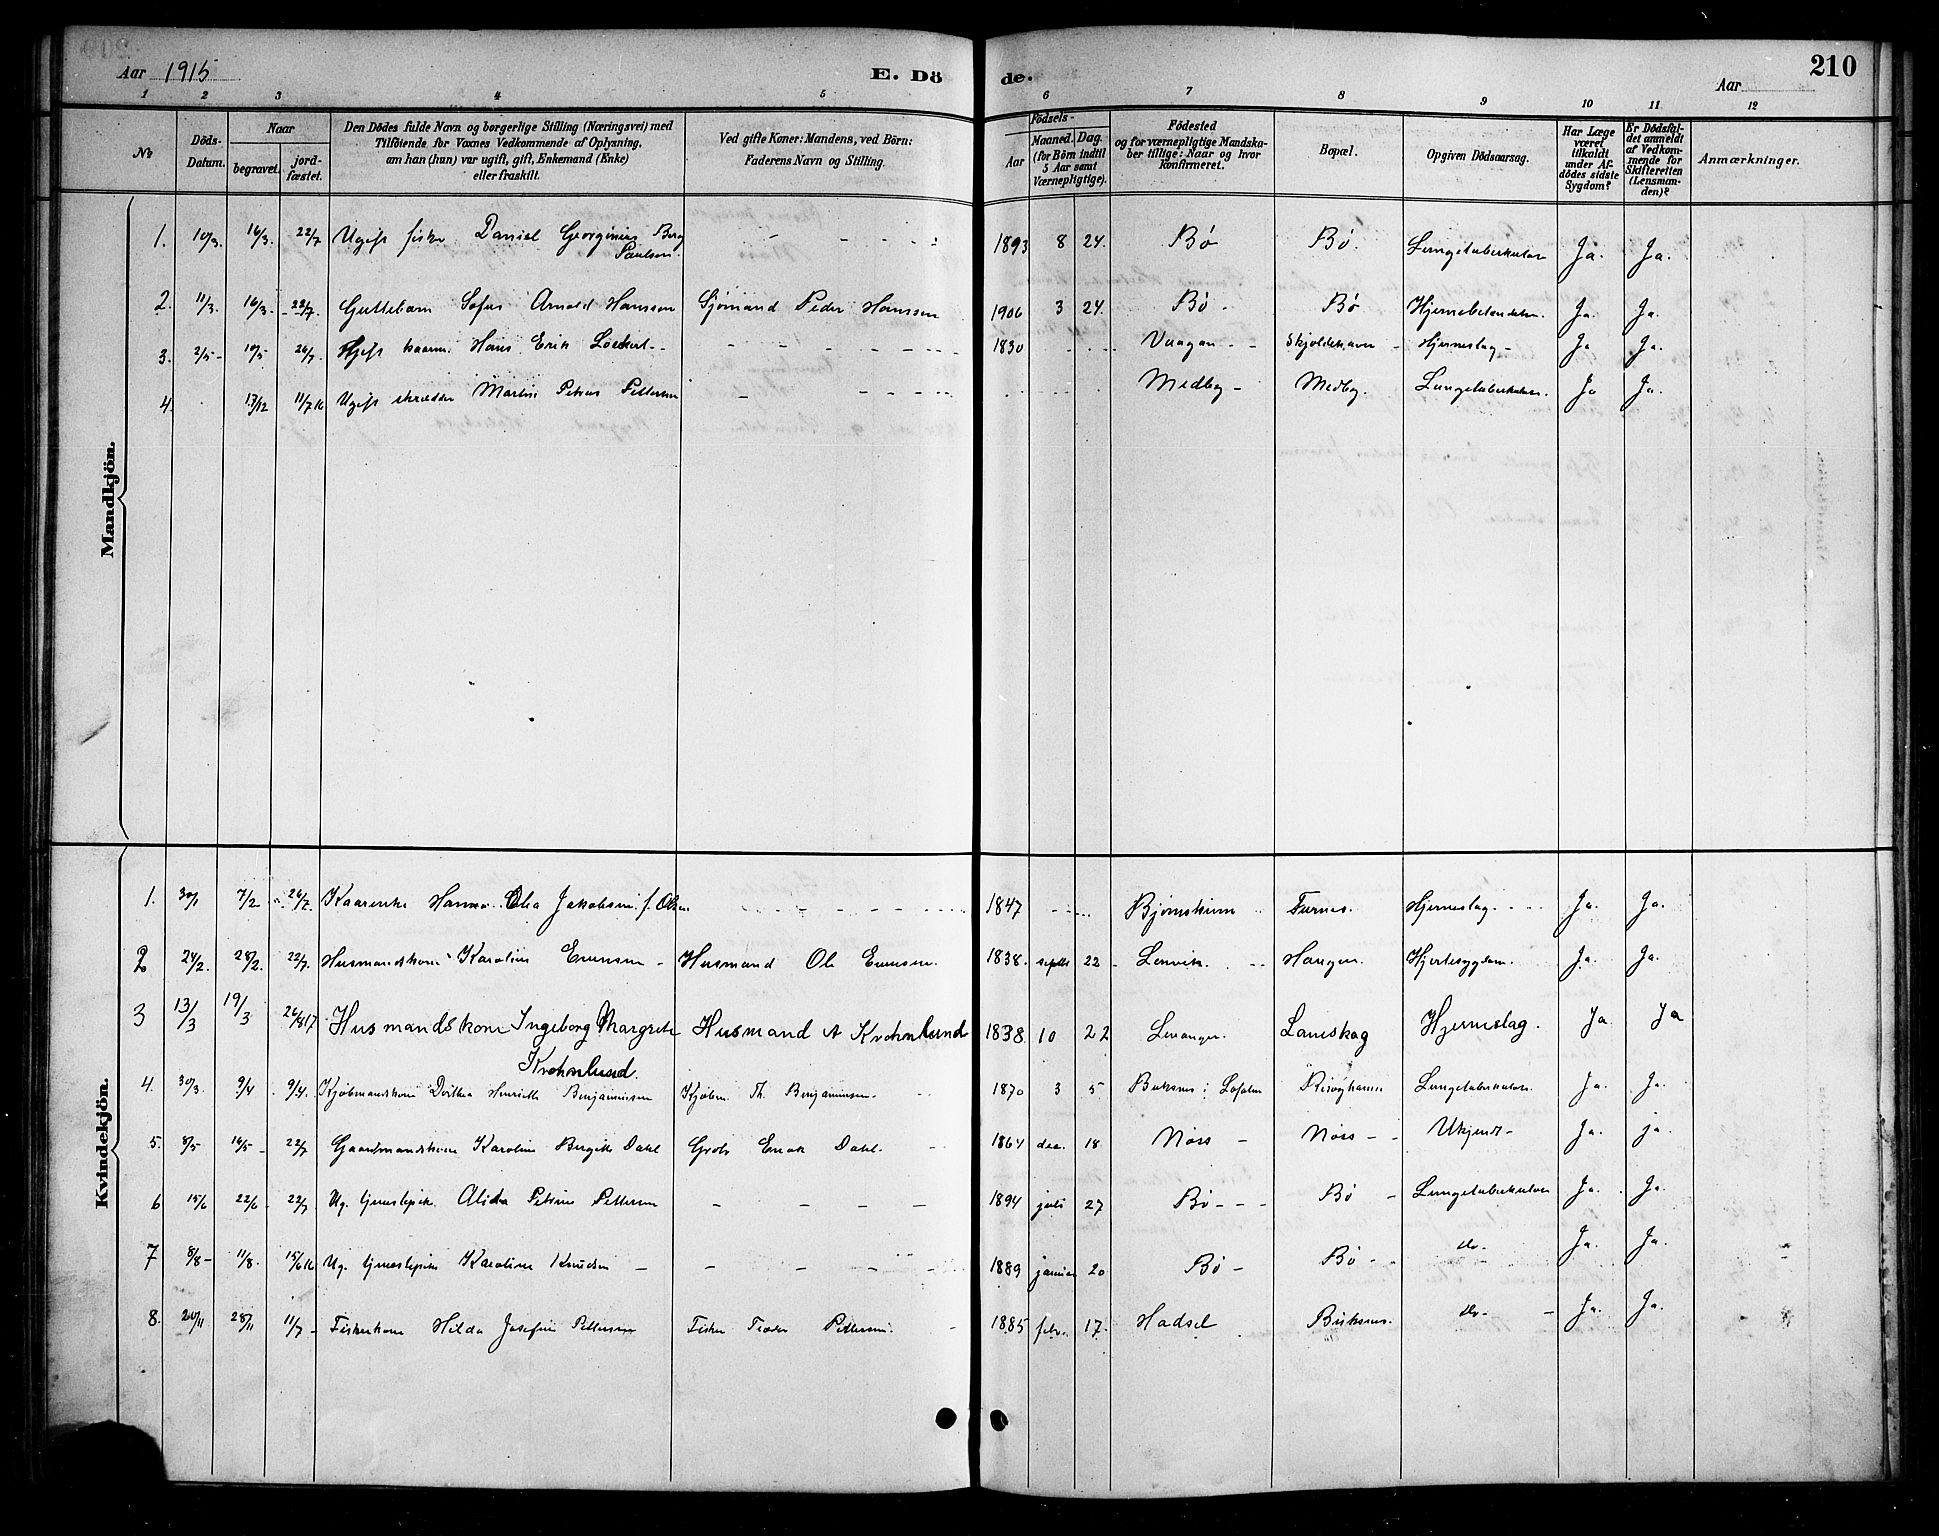 Aar 1915
E. Döde.
Aar
210
1 2 3 4 5 6 7 8 9 10 11 12
No
Döds-Datum.
Naar
begravet.
jordfæstet.
Den Dödes fulde Navn og borgerlige Stilling (Næringsvei) med Tilföiende for Voxnes Vedkommende af Oplysning, om han (hun) var ugift, gift, Enkemand (Enke) eller fraskilt.
Ved gifte Koner: Mandens, ved Börn: Faderens Navn og Stilling.
Födsels-
Aar
Maaned. Dag.
(for Börn indtil 5 Aar samt Værnepligtige).
Födested og for værnepligtige Mandskaber tillige: Naar og hvor Konfirmeret.
Bopæl.
Opgiven Dödsaarsag.
Har Læge været tilkaldt under Afdödes sidste Sygdom?
Er Dödsfaldet anmeldt af Vedkommende for Skifteretten (Lensmanden)?
Anmærkninger.
Mandkjön.
1. 10/3. 16/3. 22/7 Ugift fisker Daniel Georginius Berg Paulsen. 1893 8 24. Bø Bø. Lungetuberkulose Ja. Ja.
2. 11/3. 16/3. 22/7. Guttebarn Sofus Arnold Hanssen Sjømand Peder Hanssen 1906 3 24. Bø Bø Hjernebetendelse. Ja. Ja.
3. 2/5 10/5 26/7 Gift kaarm. Hans Erik Lockert 1830 Vaagan Skjoldehavn Hjerneslag Ja Ja.
4. 17/12 11/7 16 Ugift skrædder Martin Petrus Pettersen Medby Medby. Lungetuberkulose. Ja Ja.
Kvindekjön.
1. 30/1 7/2 26/7 Kaarenke Hanna Olea Jakobsen f. Olsen 1847 Bjørnskinn Furnes. Hjerneslag. Ja. Ja.
2 24/2. 28/2. 22/7. Husmandskone Karoline Evensen Husmand Ole Evensen. 1838. septbr 22 Lenvik. Haugen. Hjertesygdom. Ja. Ja.
3 13/3 19/3 26/8 17 Husmandskone Ingeborg Margrete Krohnlund. Husmand A Krohnlund 1838. 10 22 Levanger. Laneskog Hjerneslag. Ja. Ja
4. 30/3. 9/4 9/4. Kjøbmandskone Dorthea Henriette Benjaminsen Kjøbm. Th. Benjaminsen. 1870 3 5 Buksnes i Lofoten Risøyhamn Lungetuberkulose Ja. Ja.
5. 8/5 16/5 22/7 Gaardmandskone Karoline Birgitte Dahl Grdb. Erik Dahl. 1864 dec. 18 Nøss Nøss Ukjendt Ja. ja.
6 15/6 22/6 22/7 Ug. tjenestepike. Alida Petrine Pettersen 1894 juli 27 Bø Bø Lungetuberkulose Ja. Ja.
7 8/8 11/8. 15/6 16 Ug. tjenestepike Karoline Knudsen 1889 januar 20 Bø Bø do. Ja. Ja.
8. 20/11 28/11 11/7 Fiskerkone Hilda Josefine Pettersen Fisker Peder Pettersen. 1885 febr. 17. Hadsel Buksnes. do. Ja. Ja.